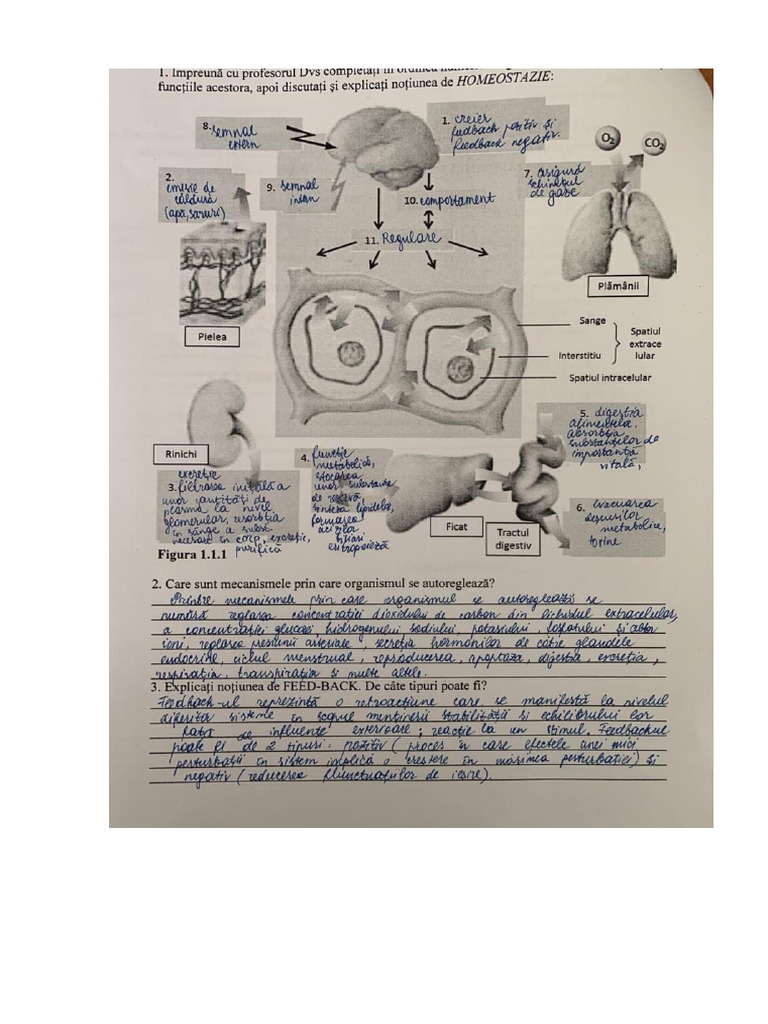 1. Împreună cu profesorul Dvs completați în ordinea
funcțiile acestora, apoi discutați și explicați noțiunea de HOMEOSTAZIE:
8. semnal
extern
1. creier
feedback pozitiv și
feedback negativ.
O₂
CO₂
2.
emisie de
căldură
(apă, săruri)
9. semnal
intern
10. comportament
7. asigură
schimbul
de gaze
11. Regulare
Pielea
Plămânii
Sange
Interstitiu
Spatiul
extrace
lular
Spatiul intracelular
Rinichi
excreție
3. filtrarea inițială a
unor cantități de
plasmă la nivel
glomerular, resorbția
în sânge a subst.
necesare în corp, excreție,
purifică
4. funcție
metabolică,
stocarea
unor substanțe
de rezervă
sinteza lipidelor,
formarea
acizilor
biliari
eritropoieză
Ficat
Tractul
digestiv
5. digestia
alimentelor,
absorbția
substanțelor de
importanță
vitală,
6. evacuarea
deșeurilor
metabolice,
toxine
Figura 1.1.1
2. Care sunt mecanismele prin care organismul se autoreglează?
Printre mecanismele prin care organismul se autoreglează se
numără reglarea concentrației dioxidului de carbon din lichidul extracelular,
a concentrației glucozei, hidrogenului sodiului, potasiului, fosfatului și altor
ioni, reglarea presiunii arteriale, secreția hormonilor de către glandele
endocrine, ciclul menstrual, reproducerea, apoptoza, digestia, excreția,
respirația, transpirația și multe altele.
3. Explicați noțiunea de FEED-BACK. De câte tipuri poate fi?
Feedback-ul reprezintă o retroacțiune care se manifestă la nivelul
diferitor sisteme în scopul menținerii stabilității și echilibrului lor
față de influențe exterioare; reacție la un stimul. Feedbackul
poate fi de 2 tipuri: pozitiv (proces în care efectele unei mici
perturbații în sistem implică o creștere în mărimea perturbației) și
negativ (reducerea fluctuațiilor de ieșire).